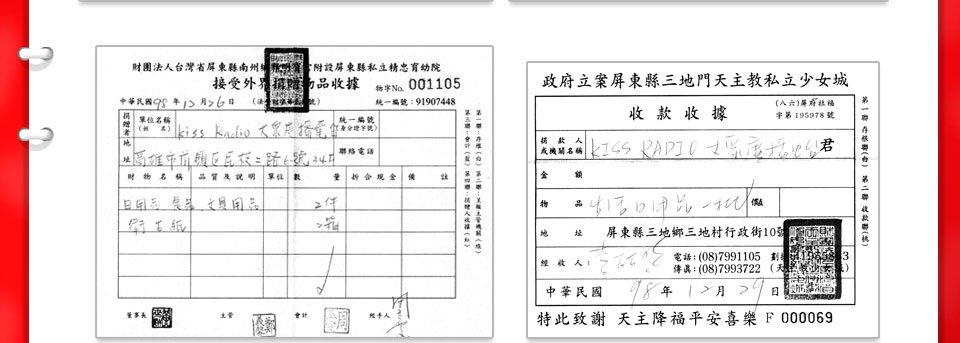 財團法人台灣省屏東縣南州鄉 附設屏東縣私立精忠育幼院
接受外界捐贈物品收據 物字No. 001105
中華民國98年12月26日 統一編號:91907448
捐贈者 單位名稱(姓名) Kiss Radio 大眾廣播電台 統一編號(身分證字號)
地址 高雄市前鎮區民權二路6號34F 聯絡電話
財物名稱 品質及說明 單位 數量 折合現金 備註
日用品、食品、文具用品 2件
衛生紙 2箱
董事長 主管 會計 經手人
第一聯:存根(白) 第二聯:呈報主管機關(綠)
第三聯:會計(藍) 第四聯:捐贈人收據(紅)
政府立案屏東縣三地門天主教私立少女城
(八六)屏府社福
收款收據 字第195978號
捐款人或機關名稱 KISS RADIO 大眾廣播電台 君
金額
物品 生活日用品一批 價值
地址 屏東縣三地鄉三地村行政街10號
經收人: 電話:(08)7991105
傳真:(08)7993722 (天主教少女城)
中華民國 98年12月29日
特此致謝 天主降福平安喜樂 F 000069
第一聯 存根聯(白) 第二聯 收款聯(桃)